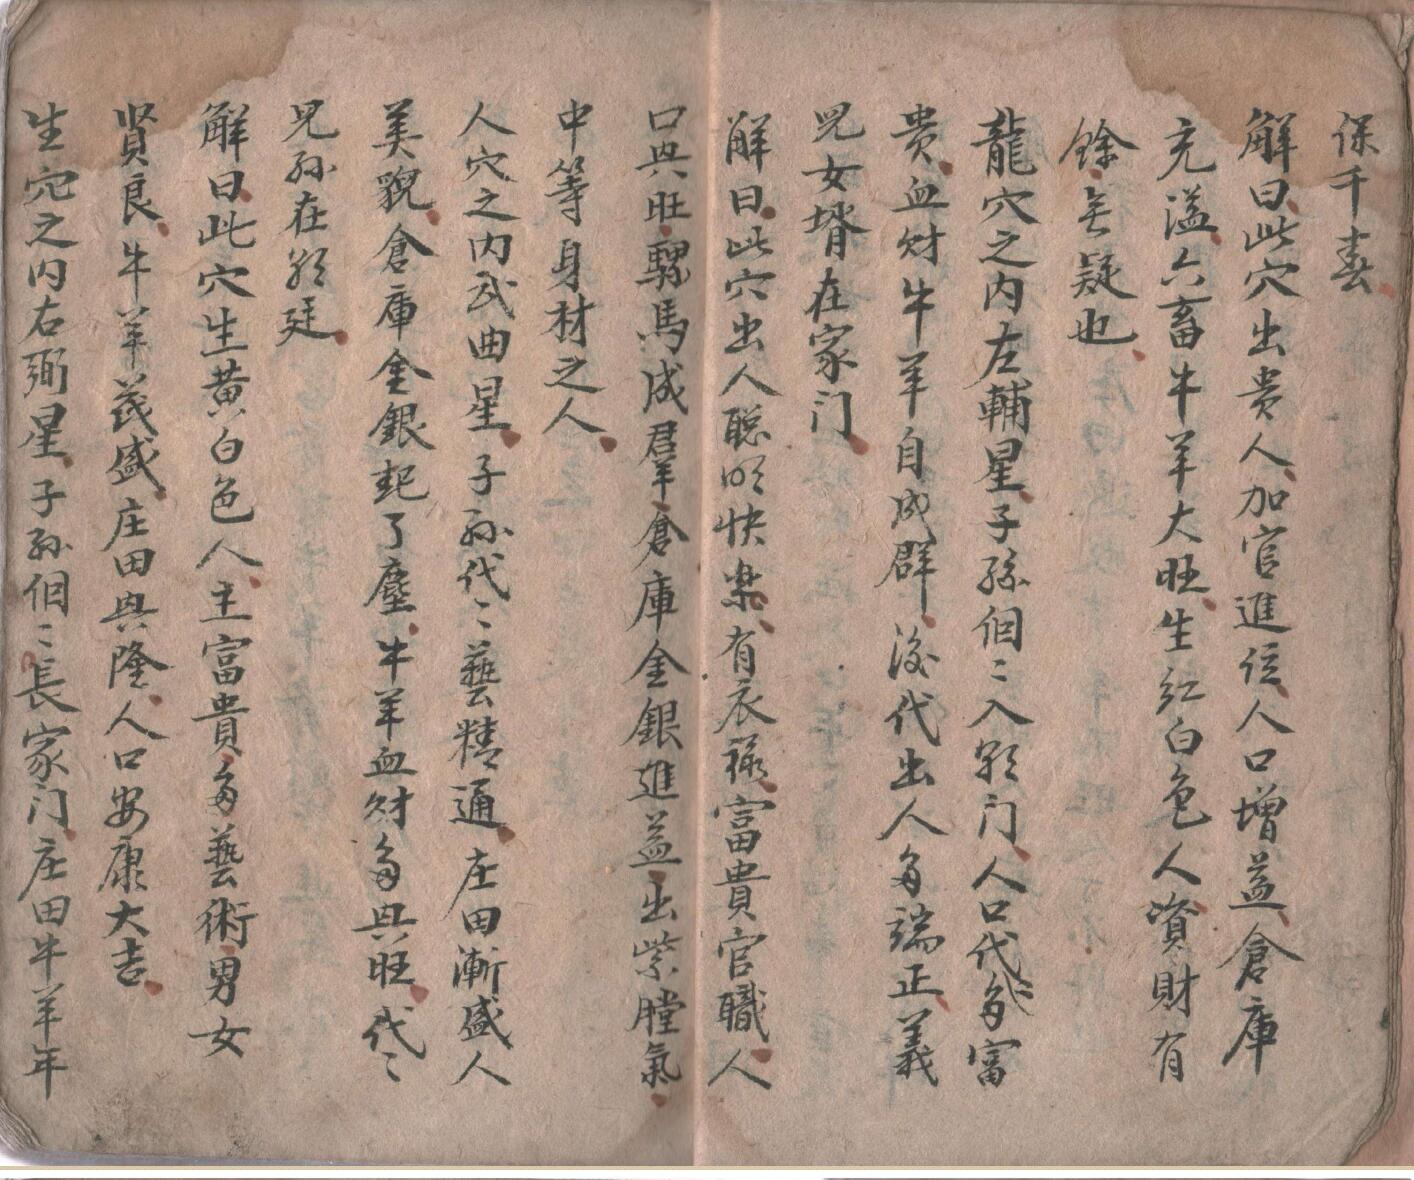 保千春
解曰此穴出贵人加官進位人口增益倉庫
充溢六畜牛羊大旺生红白色人資財有
餘无疑也
龍穴之内左輔星子孫個〻入朝门人口代〻多富
贵血财牛羊自成群後代出人多端正義
兒女壻在家门
解曰此穴出人聪明快楽有衣禄富貴官職人
口興旺騾馬成羣倉庫金銀進益出紫膛氣
中等身材之人
人穴之内武曲星子孙代〻藝精通庄田漸盛人
美貌倉庫金銀起了塵牛羊血财多興旺代〻
兒孙在朝廷
解曰此穴生黄白色人主富貴多藝術男女
贤良牛羊茂盛庄田興隆人口安康大吉
生穴之内右弼星子孙個〻長家门庄田牛羊年